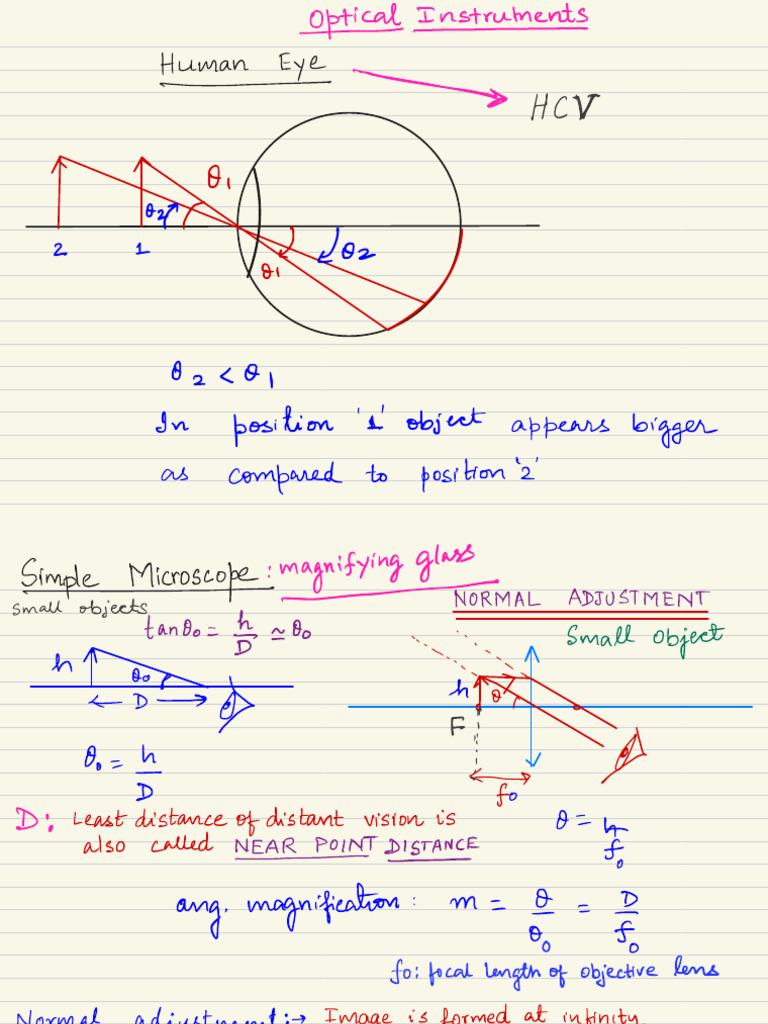 Optical Instruments
Human Eye
HCV
θ1
θ2
2
1
θ1
θ2
θ2 < θ1
In position '1' object appears bigger
as compared to position '2'
Simple Microscope : magnifying glass
small objects
NORMAL ADJUSTMENT
tanθ₀ = h/D ≃ θ₀
Small object
h
θ₀
D
h
θ
F
f₀
θ₀ = h/D
D: Least distance of distant vision is
also called NEAR POINT DISTANCE
θ = h/f₀
ang. magnification: m = θ/θ₀ = D/f₀
fo: focal length of objective lens
Normal adjustment :→ Image is formed at infinity